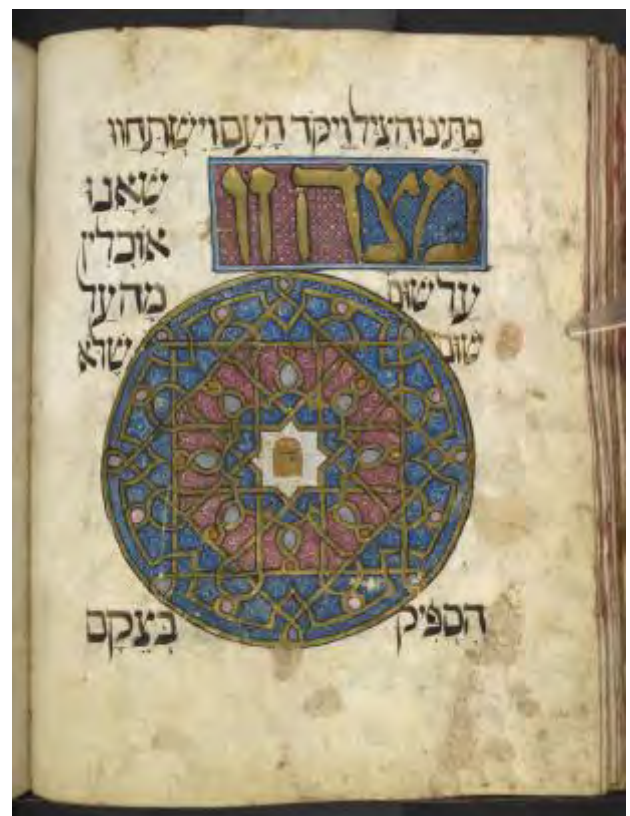 בָּתֵּינוּ הִצִּיל וַיִּקֹּד הָעָם וַיִּשְׁתַּחֲווּ
מצה זו שֶׁאָנוּ
אוֹכְלִין
עַל שׁוּם מָה עַל
שׁוּם שֶׁלֹּא
הִסְפִּיק בְּצֵקָם